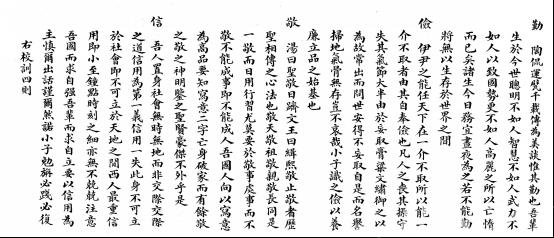 勤　陶侃運甓千載傳為美談惟其勤也吾輩
生於今世聰明不如人智慧不如人武力不
如人以致國勢更不如人高麗之所以亡惰
而已矣諸生今日務宜晝夜為之若不能勤
將無以生存於世界之間
儉　伊尹之能任天下在一介不取所以能一
介不取者由其自奉儉也凡人之喪其操守
失其氣節大率由於妄取膏粱文繡御之以
為故常出而問世安得不妄取自是而名譽
掃地氣骨無存豈不哀哉小子識之儉以養
廉立品之始基也
敬　湯曰聖敬日躋文王曰緝熙敬止敬者歷
聖相傳之心法也敬天敬祖敬親敬長同是
一敬而日用行習尤莫要於敬事處事而不
敬不能成事即不能成人吾國人向以寫意
為高品要知寫意二字亡身破家而有餘敬
之敬之神明鑒之聖賢豪傑不外乎是
信　吾人置身社會無時無地而非交際交際
之道信用為第一義信用一失此身不可立
於社會即不可立於天地之間西人最重信
用即小至鐘點時刻之細亦無不兢兢注意
吾國而求自强吾輩而求自立要以信用為
主慎爾出話謹爾然諾小子勉旃必踐必復
右校訓四則